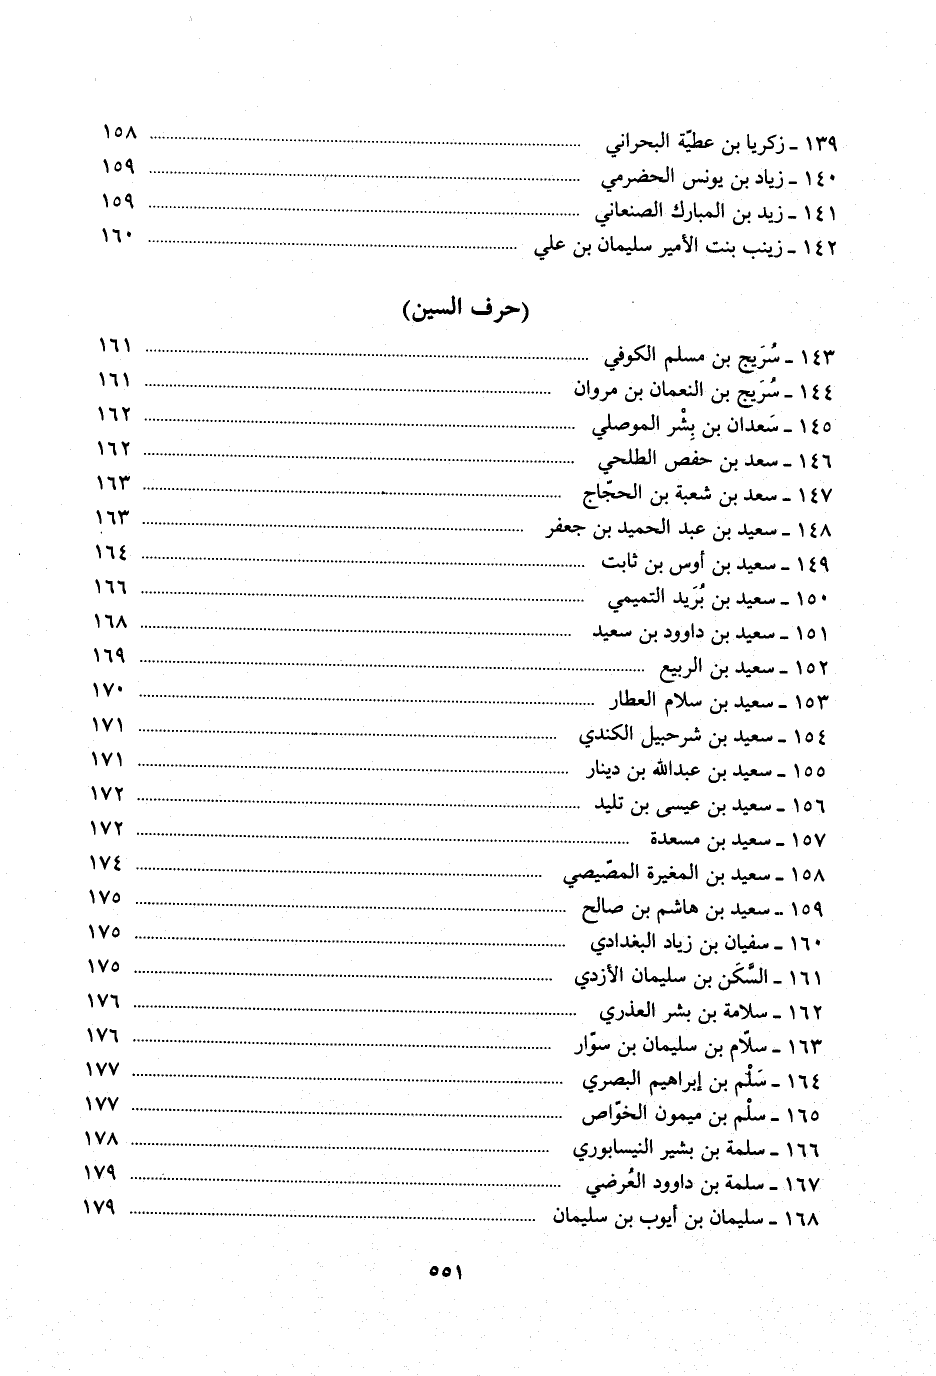 ١٣٩ ـ زكريا بن عطيّة البحراني ........ ١٥٨
١٤٠ ـ زياد بن يونس الحضرمي ........ ١٥٩
١٤١ ـ زيد بن المبارك الصنعاني ........ ١٥٩
١٤٢ ـ زينب بنت الأمير سليمان بن علي ........ ١٦٠
(حرف السين)
١٤٣ ـ سُرَيج بن مسلم الكوفي ........ ١٦١
١٤٤ ـ سُرَيج بن النعمان بن مروان ........ ١٦١
١٤٥ ـ سَعدان بن بِشْر الموصلي ........ ١٦٢
١٤٦ ـ سعد بن حفص الطلحي ........ ١٦٢
١٤٧ ـ سعد بن شعبة بن الحجّاج ........ ١٦٣
١٤٨ ـ سعيد بن عبد الحميد بن جعفر ........ ١٦٣
١٤٩ ـ سعيد بن أوس بن ثابت ........ ١٦٤
١٥٠ ـ سعيد بن بُرَيد التميمي ........ ١٦٦
١٥١ ـ سعيد بن داوود بن سعيد ........ ١٦٨
١٥٢ ـ سعيد بن الربيع ........ ١٦٩
١٥٣ ـ سعيد بن سلام العطار ........ ١٧٠
١٥٤ ـ سعيد بن شرحبيل الكندي ........ ١٧١
١٥٥ ـ سعيد بن عبدالله بن دينار ........ ١٧١
١٥٦ ـ سعيد بن عيسى بن تليد ........ ١٧٢
١٥٧ ـ سعيد بن مسعدة ........ ١٧٢
١٥٨ ـ سعيد بن المغيرة المصّيصي ........ ١٧٤
١٥٩ ـ سعيد بن هاشم بن صالح ........ ١٧٥
١٦٠ ـ سفيان بن زياد البغدادي ........ ١٧٥
١٦١ ـ السَّكَن بن سليمان الأزدي ........ ١٧٥
١٦٢ ـ سلامة بن بشر العذري ........ ١٧٦
١٦٣ ـ سلّام بن سليمان بن سوّار ........ ١٧٦
١٦٤ ـ سَلْم بن إبراهيم البصري ........ ١٧٧
١٦٥ ـ سلْم بن ميمون الخوّاص ........ ١٧٧
١٦٦ ـ سلمة بن بشير النيسابوري ........ ١٧٨
١٦٧ ـ سلمة بن داوود العُرضي ........ ١٧٩
١٦٨ ـ سليمان بن أيوب بن سليمان ........ ١٧٩
٥٥١